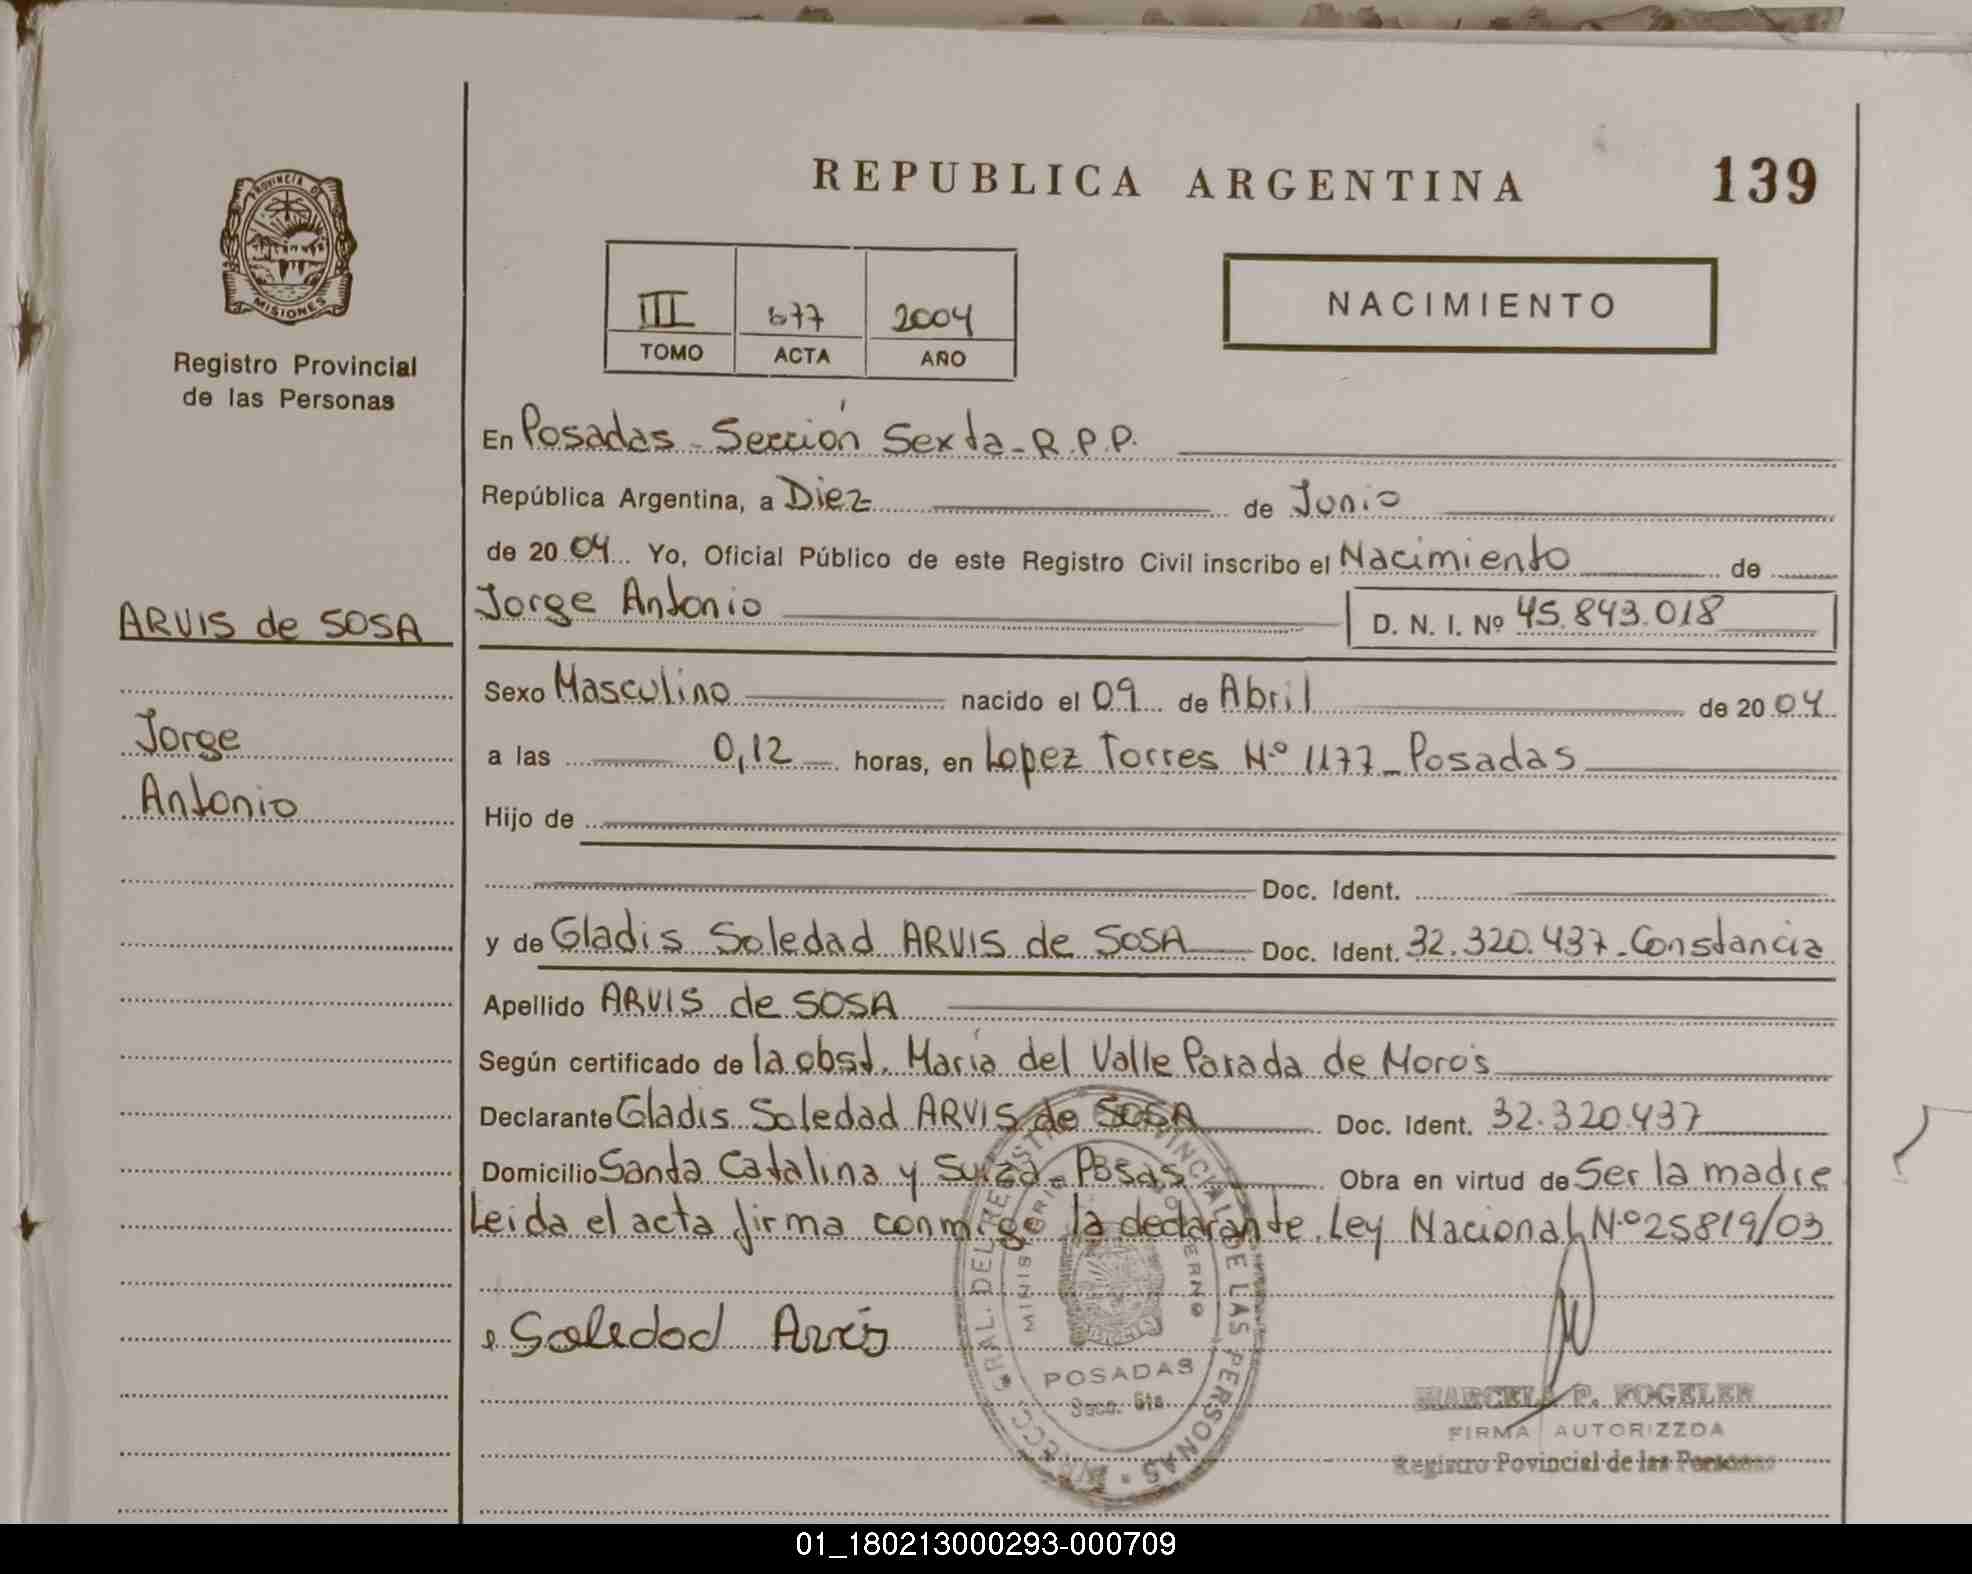 REPUBLICA ARGENTINA
139
PROVINCIA D
MISIONES
Registro Provincial
de las Personas
III 677 2004
TOMO ACTA AÑO
NACIMIENTO
En Posadas - Sección Sexta - R.P.P.
República Argentina, a Diez de Junio
de 2004 Yo, Oficial Público de este Registro Civil inscribo el Nacimiento de
ARVIS de SOSA
Jorge Antonio
D. N. I. Nº 45.843.018
Sexo Masculino nacido el 09 de Abril de 2004
Jorge
a las 0,12 horas, en Lopez Torres Nº 1177 - Posadas
Antonio
Hijo de
Doc. Ident.
y de Gladis Soledad ARVIS de SOSA Doc. Ident. 32.320.437 - Constancia
Apellido ARVIS de SOSA
Según certificado de la obst. María del Valle Parada de Moro's
Declarante Gladis Soledad ARVIS de SOSA Doc. Ident. 32.320.437
Domicilio Santa Catalina y Suiza - Posas Obra en virtud de Ser la madre
Leida el acta firma conmigo la declarante. Ley Nacional N.º 25819/03
Soledad Arvis
GRAL. DEL REGISTRO PROVINCIAL DE LAS PERSONAS
MINISTERIO GOBIERNO
POSADAS
Secc. 6ta
MARCELA P. FOGELER
FIRMA AUTORIZZDA
Registro Povincial de las Personas
01_180213000293-000709